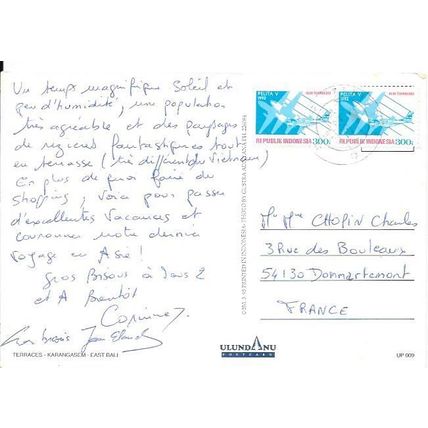 Un temps magnifique Soleil et
peu d'humidité, une population
très agréable et des paysages
de rizières fantastiques tout
en terrasse (très différent du Vietnam)
En plus de quoi faire du
Shopping, voilà pour passer
d'excellentes vacances et
couronner notre dernier
voyage en Asie !
Gros Bisous à vous 2
et A Bientôt
Corinne
Gros bisous Jean Claude
TERRACES - KARANGASEM - EAST BALI
PELITA V
1992
REPUBLIK INDONESIA 300
PELITA V
1992
REPUBLIK INDONESIA 300
Mr Mme CHOPIN Charles
3 Rue des Bouleaux
54130 Dommartemont
FRANCE
ULUNDANU
POSTCARD
UP 009